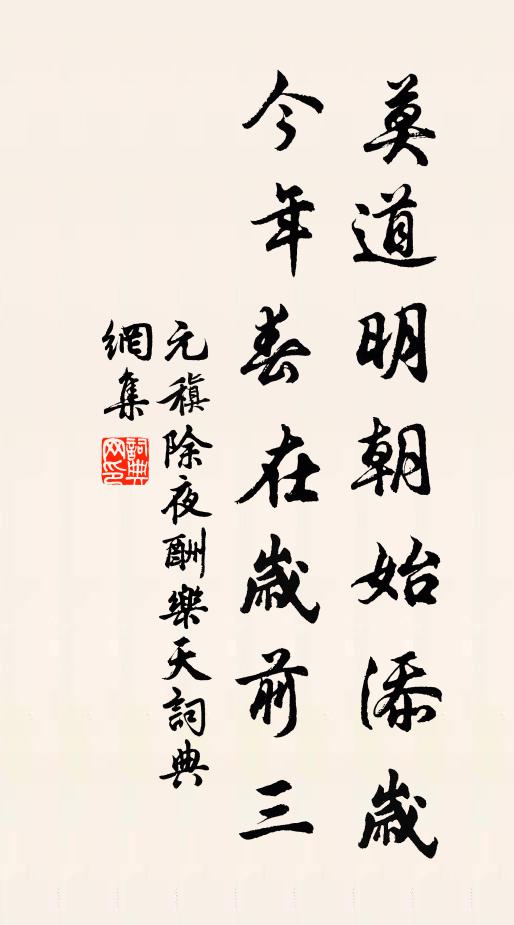 莫道明朝始添歲
今年春在歲前三
元稹除夜酬樂天詞典
網集
詞典網印